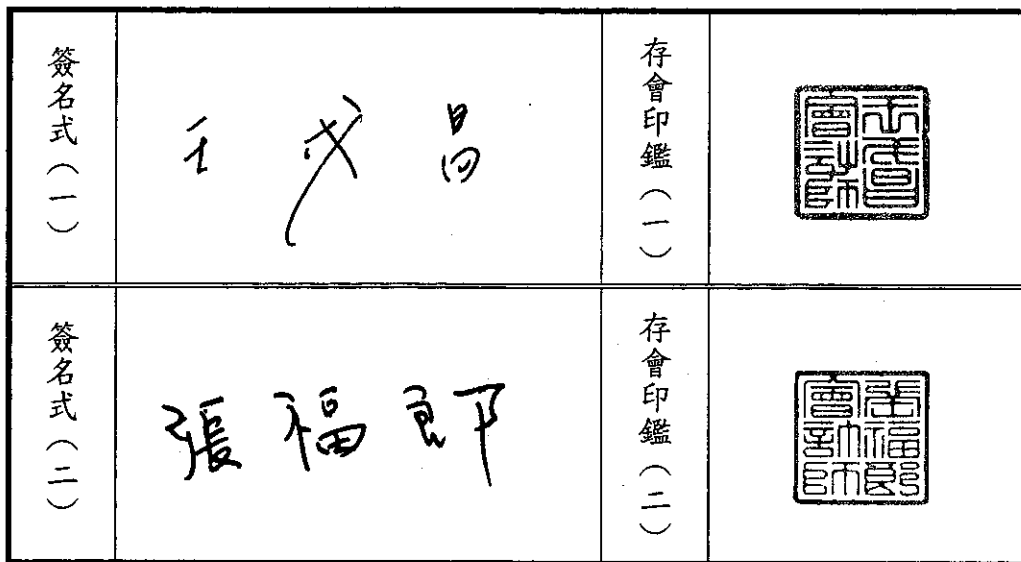 簽名式(一)
王戊昌
存會印鑑(一)
簽名式(二)
張福郎
存會印鑑(二)
張福郎
會計師